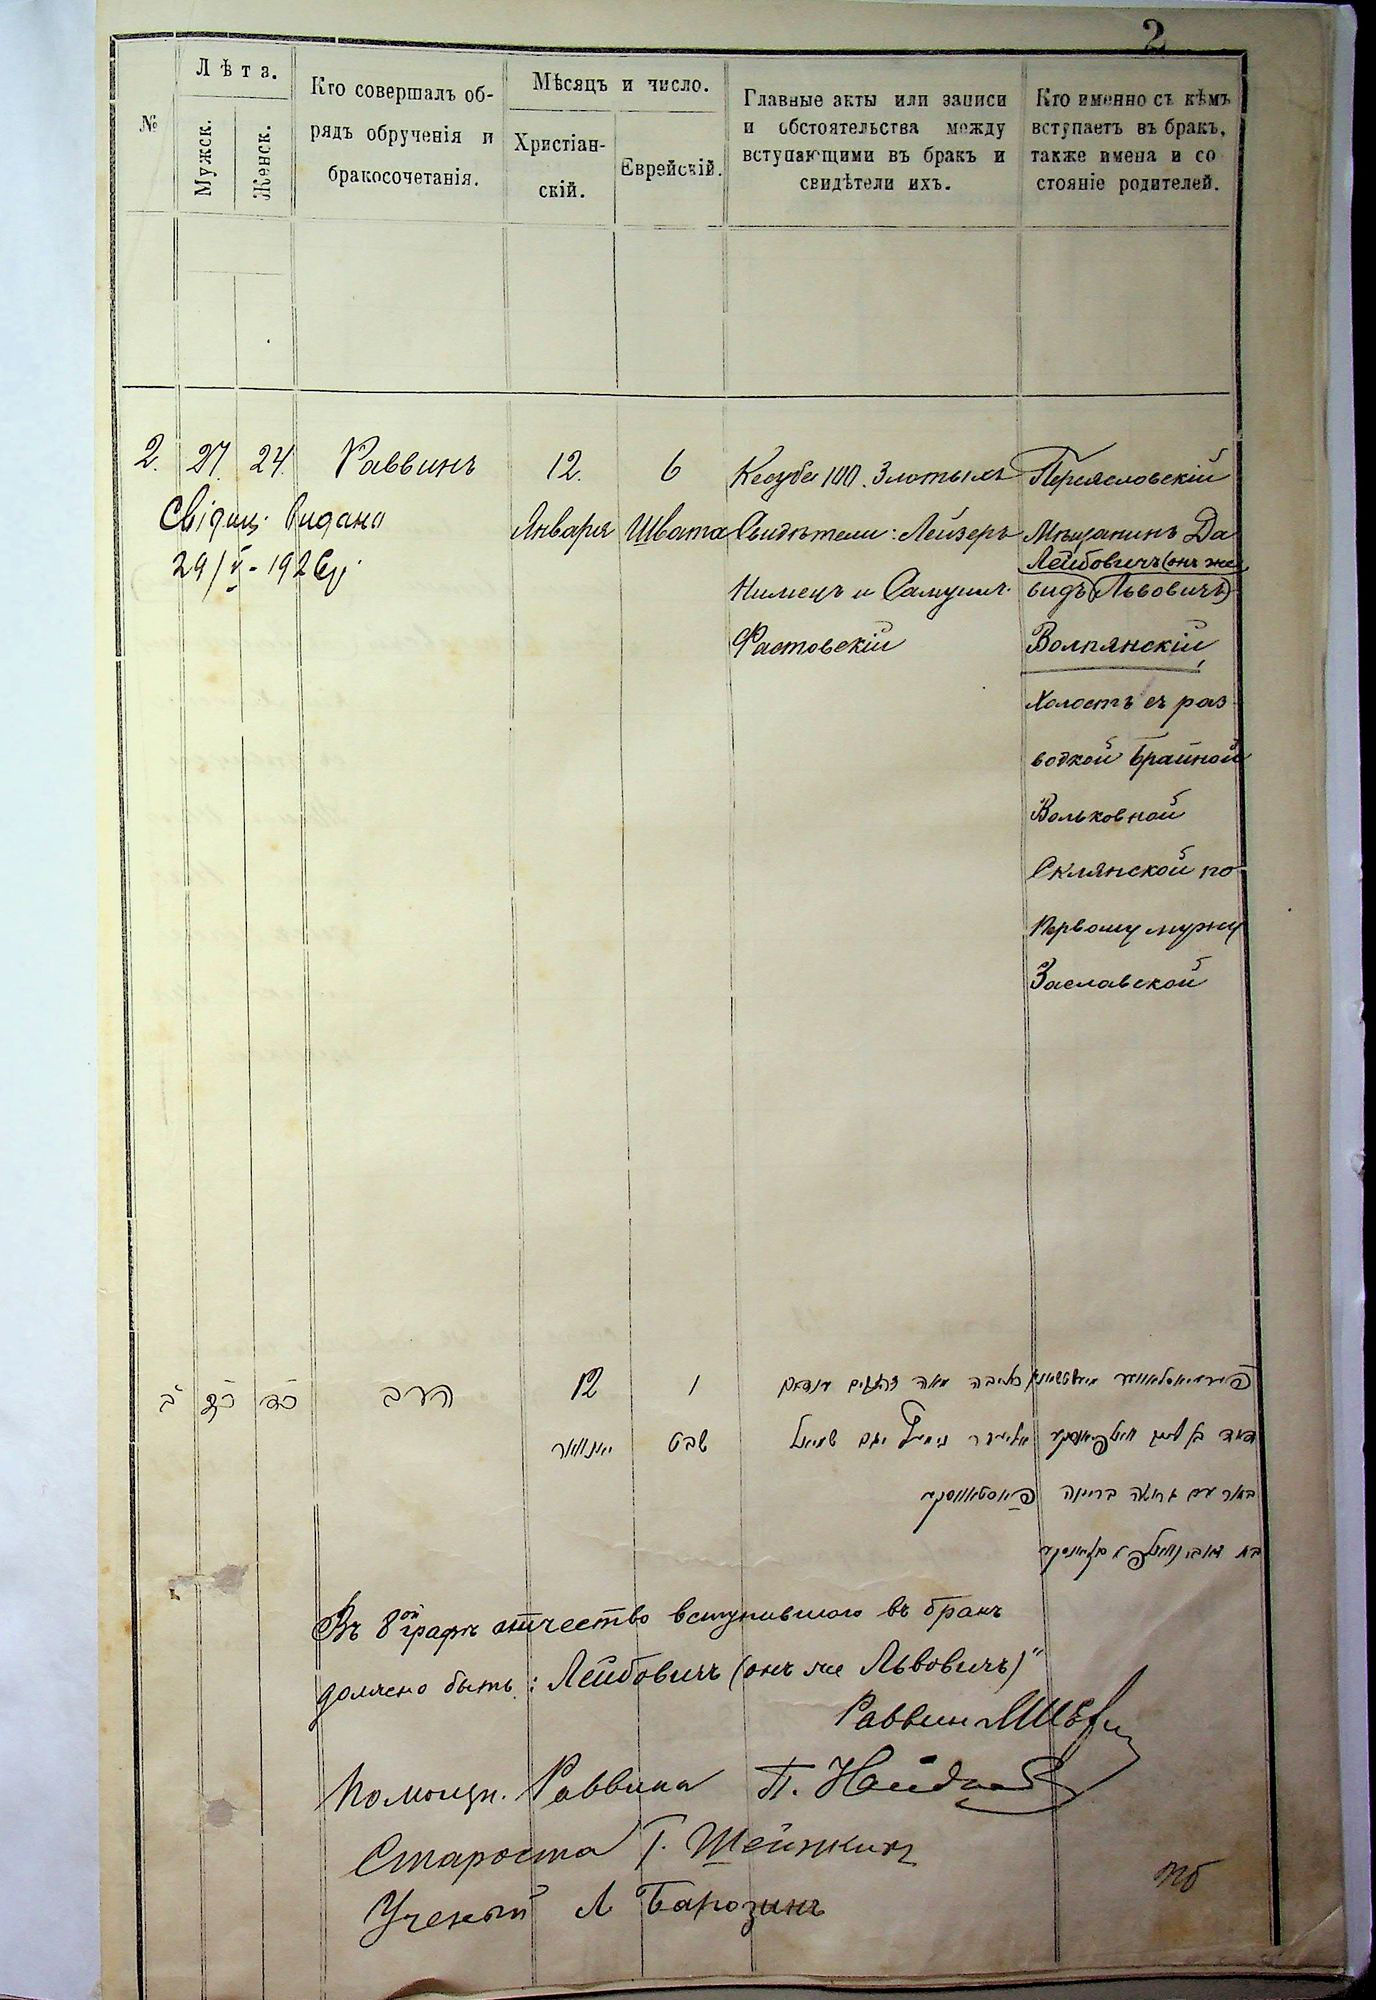 2
№
Лѣта.
Мужск.
Женск.
Кто совершалъ об-
рядъ обрученія и
бракосочетанія.
Мѣсяцъ и число.
Христіан-
скій.
Еврейскій.
Главные акты или записи
и обстоятельства между
вступающими въ бракъ и
свидѣтели ихъ.
Кто именно съ кѣмъ
вступаетъ въ бракъ,
также имена и со
стояніе родителей.
2. 27. 24. Раввинъ 12. 6
Января Швата
Свідоц. видано
29/V - 1926 р.
Кесуба 100 Злотыхъ
Свидѣтели: Лейзеръ
Нимецъ и Самуил
Фастовскій
Переясловскій
Мѣщанинъ Да
Лейбовичъ (онъ же
видъ (Львовичъ)
Волпянскій
Холостъ съ раз
водкой Брайной
Вольковной
Склянской по
Первому мужу
Заславской
ב כז כד הרב 12 ו
יאנוואר שבט
כתובה מאה זהובים
דוד בן
עם גרושה בריינה
בת
Въ 8ой графѣ отчество вступившаго въ бракъ
должно быть: Лейбовичъ (онъ же Львовичъ)"
Раввин
Помощн. Раввина П.
Староста Г. Шейнкин
Ученый Л